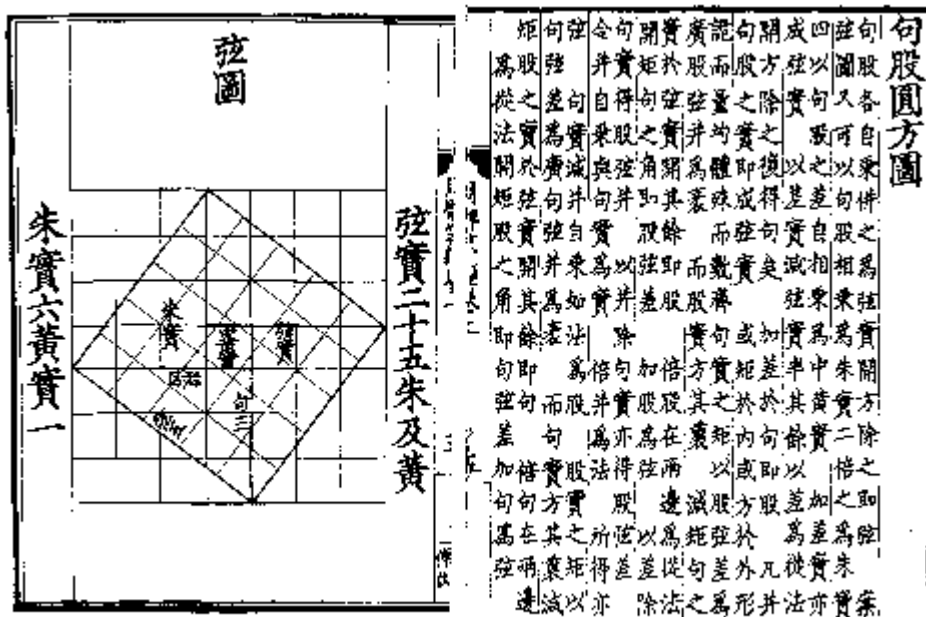 句股圓方圖
句股各自乘併之為弦實開方除之即弦 案
弦圖又可以句股相乘為朱實二倍之為朱實
四以句股之差自相乘為中黃實加差實亦
成弦實 以差實減弦實半其餘以差為從法
開方除之復得句矣 加差於句即股 凡并
句股之實即成弦實 或矩於內或方於外形
詭而量均體殊而數齊 句實之矩以股弦差為
廣股弦并為袤 而股實方其裏 減矩句之
實於弦實開其餘即股 倍股在兩邊為從法
開矩句之角即股弦差 加股為弦 以差除
句實得股弦并 以并除句實亦得股弦差
令并自乘與句實為實 倍并為法 所得亦
弦 句實減并自乘如法為股 股實之矩以
句弦差為廣句弦并為袤 而句實方其裏減
矩股之實於弦實開其餘即句 倍句在兩邊
為從法開矩股之角即句弦差加句為弦
弦圖
弦實二十五朱及黃
朱實
中黃實
朱實
句三
朱實六黃實一